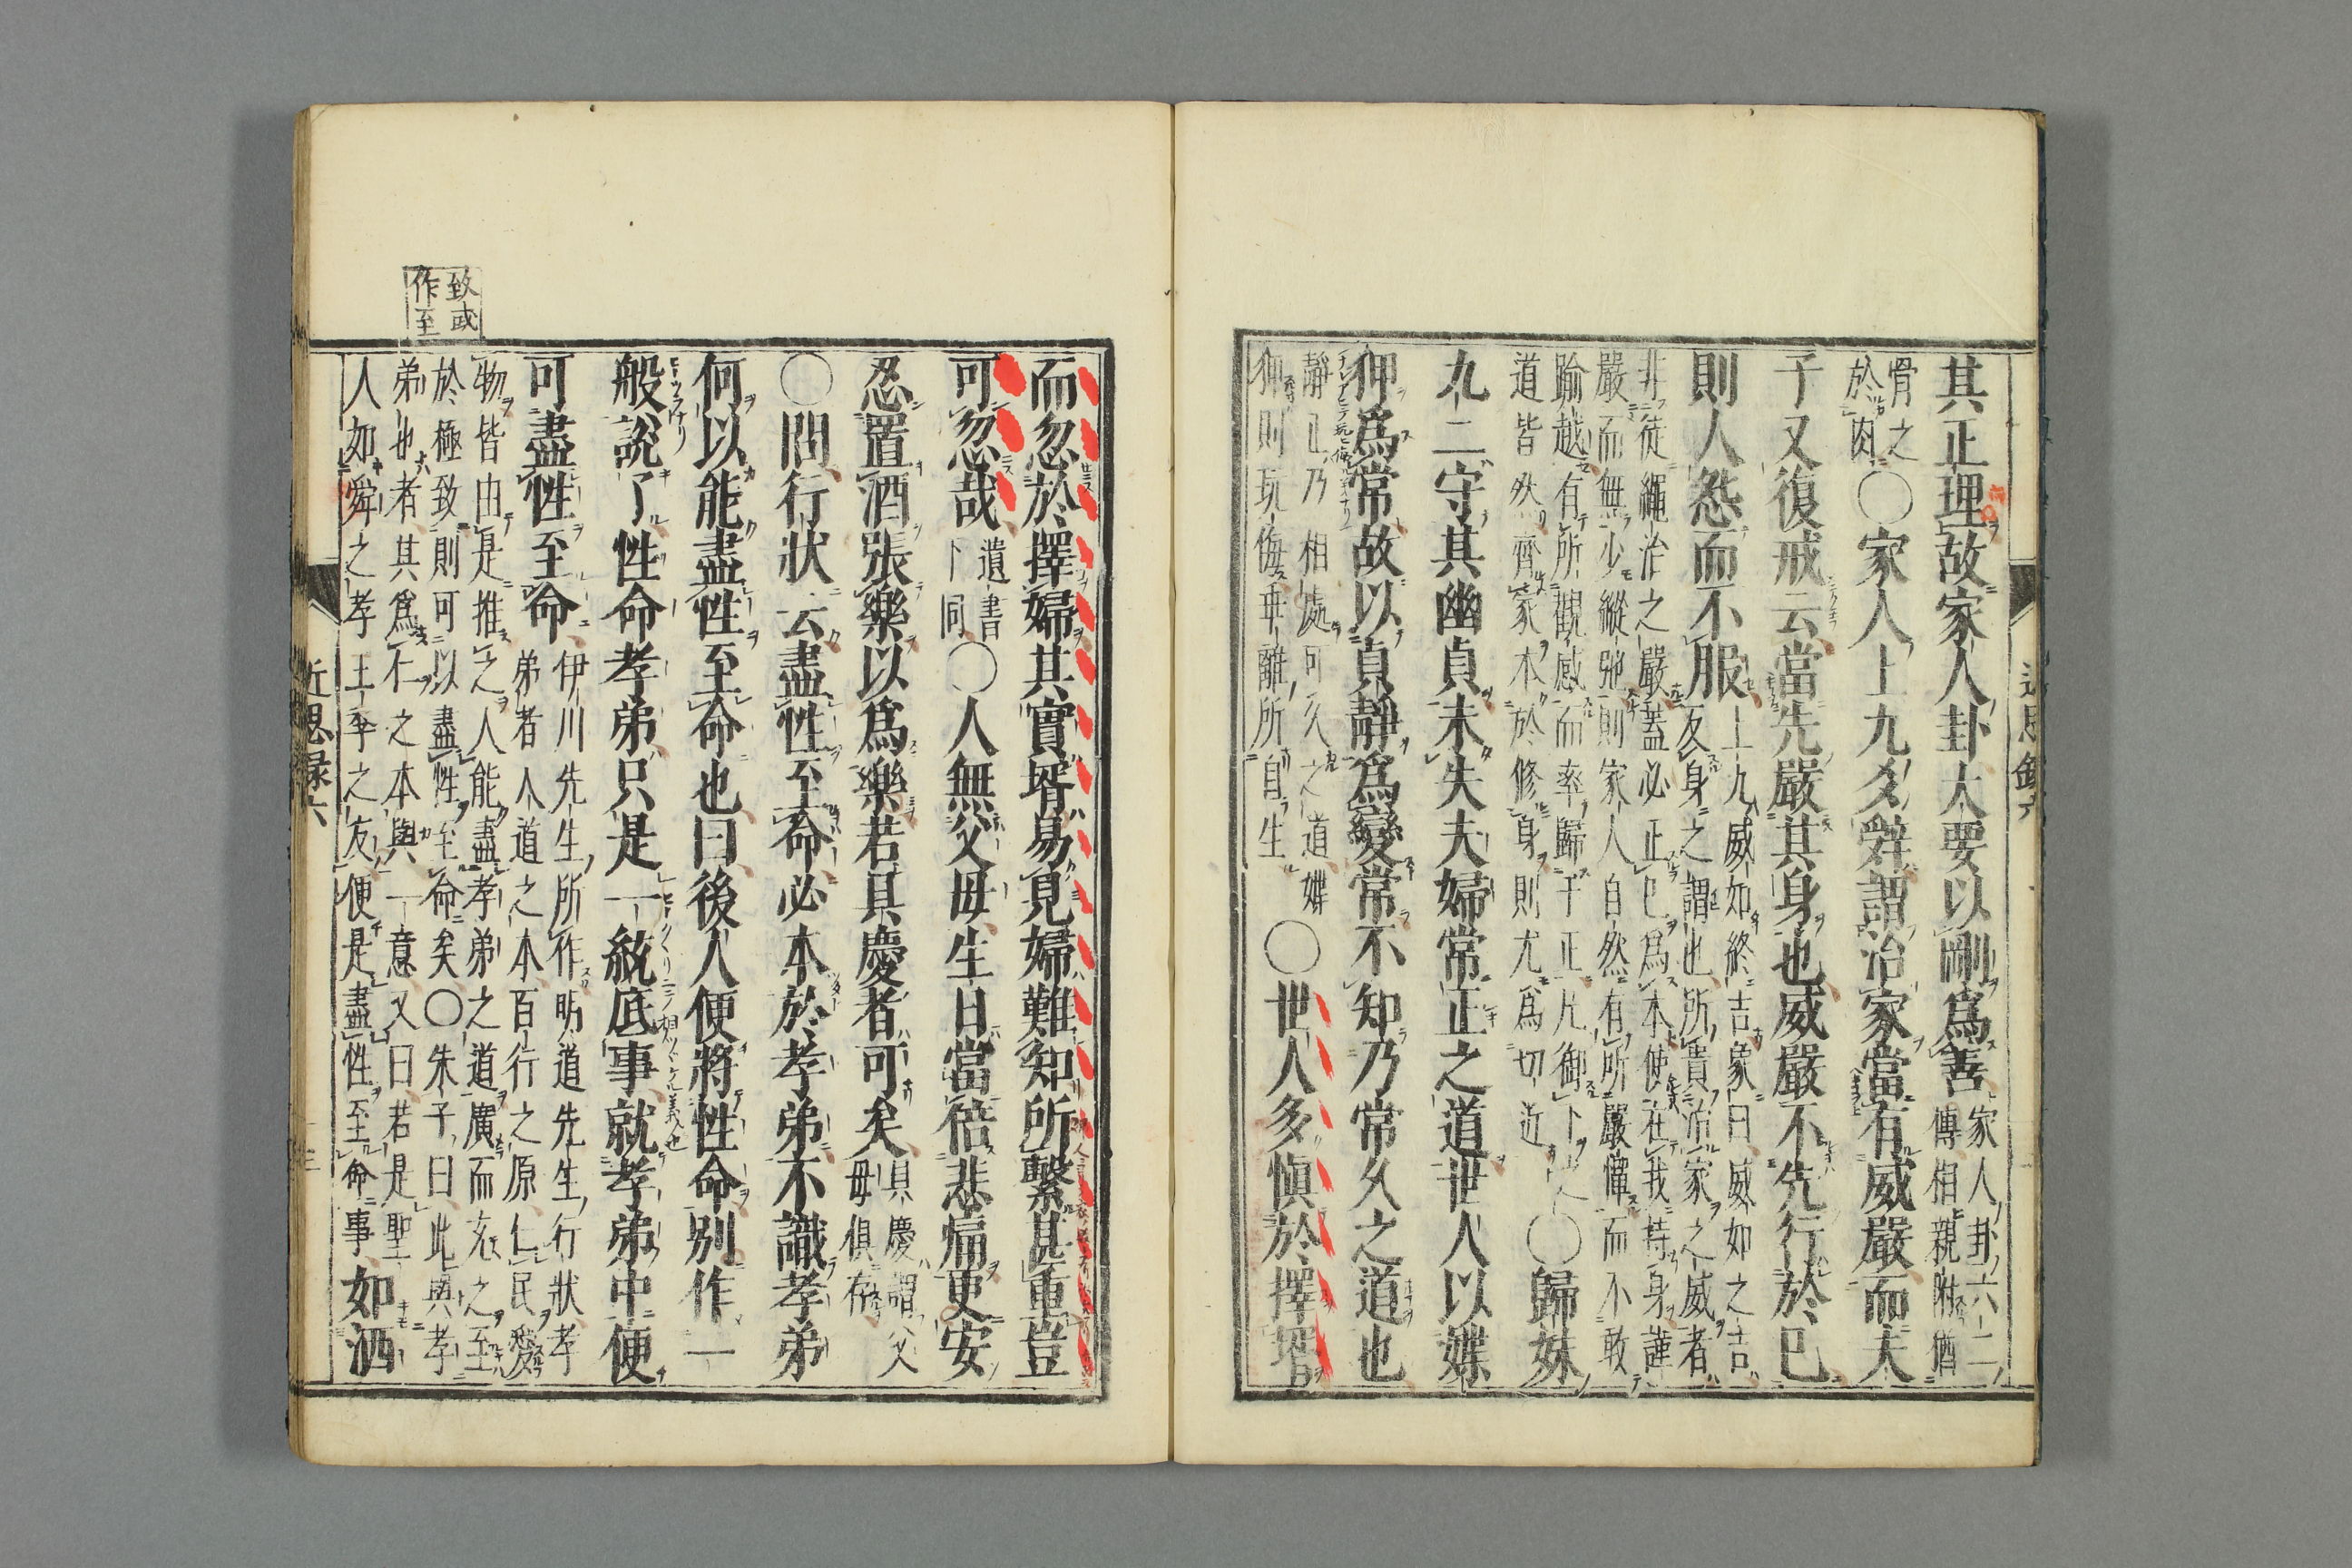 其正理故家人卦大要以剛爲善
家人卦六二
傳相親附猶
骨之
於肉
〇家人上九爻辭謂治家當有威嚴而夫
子又復戒云當先嚴其身也威嚴不先行於已
則人怨而不服
上九威如終吉象曰威如之吉
反身之謂也所貴治家之威者
非徒繩治之嚴蓋必正已爲本使在我持身謹
嚴而無少縱弛則家人自然有所嚴憚而不敢
踰越有所觀感而率歸于正凡御下
道皆然齊家本於修身則尤爲切近
〇歸妹
九二守其幽貞未失夫婦常正之道世人以媟
狎爲常故以貞靜爲變常不知乃常久之道也
靜正乃相處可久之道媟
狎則玩侮乖離所自生
〇世人多愼於擇壻
近思錄六
而忽於擇婦其實壻易見婦難知所繫甚重豈
可忽哉
遺書
下同
〇人無父毋生日當倍悲痛更安
忍置酒張樂以爲樂若具慶者可矣
具慶謂父
毋俱存
〇問行狀云盡性至命必本於孝弟不識孝弟
何以能盡性至命也曰後人便將性命別作一
般說了性命孝弟只是一統底事就孝弟中便
可盡性至命
伊川先生所作明道先生行狀孝
弟者人道之本百行之原仁民愛
物皆由是推之人能盡孝弟之道廣而充之至
於極致則可以盡性至命矣〇朱子曰此與孝
弟也者其爲仁之本與一意又曰若是聖
人如舜之孝王季之友便是盡性至命事
如洒
近思錄六
致或
作至